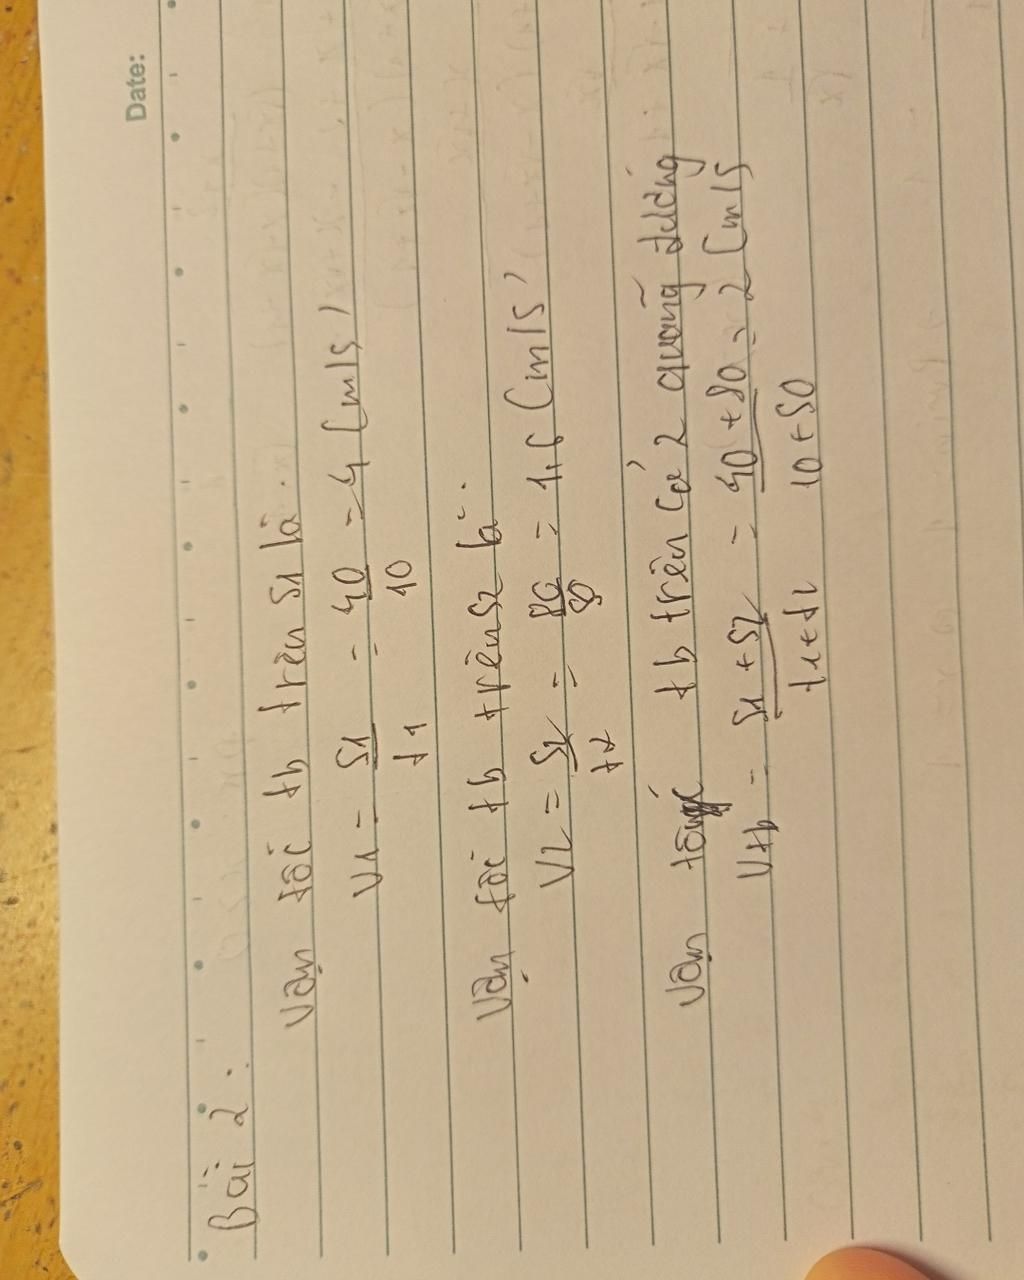 Date:
Bài 2:
Vận tốc tb trên S1 là:
V1 = S1/t1 = 40/10 = 4 (m/s)
Vận tốc tb trên S2 là:
V2 = S2/t2 = 80/50 = 1,6 (m/s)
Vận tốc tb trên cả 2 quãng đường
Vtb = S1 + S2/t1 + t2 = 40 + 80/10 + 50 = 2 (m/s